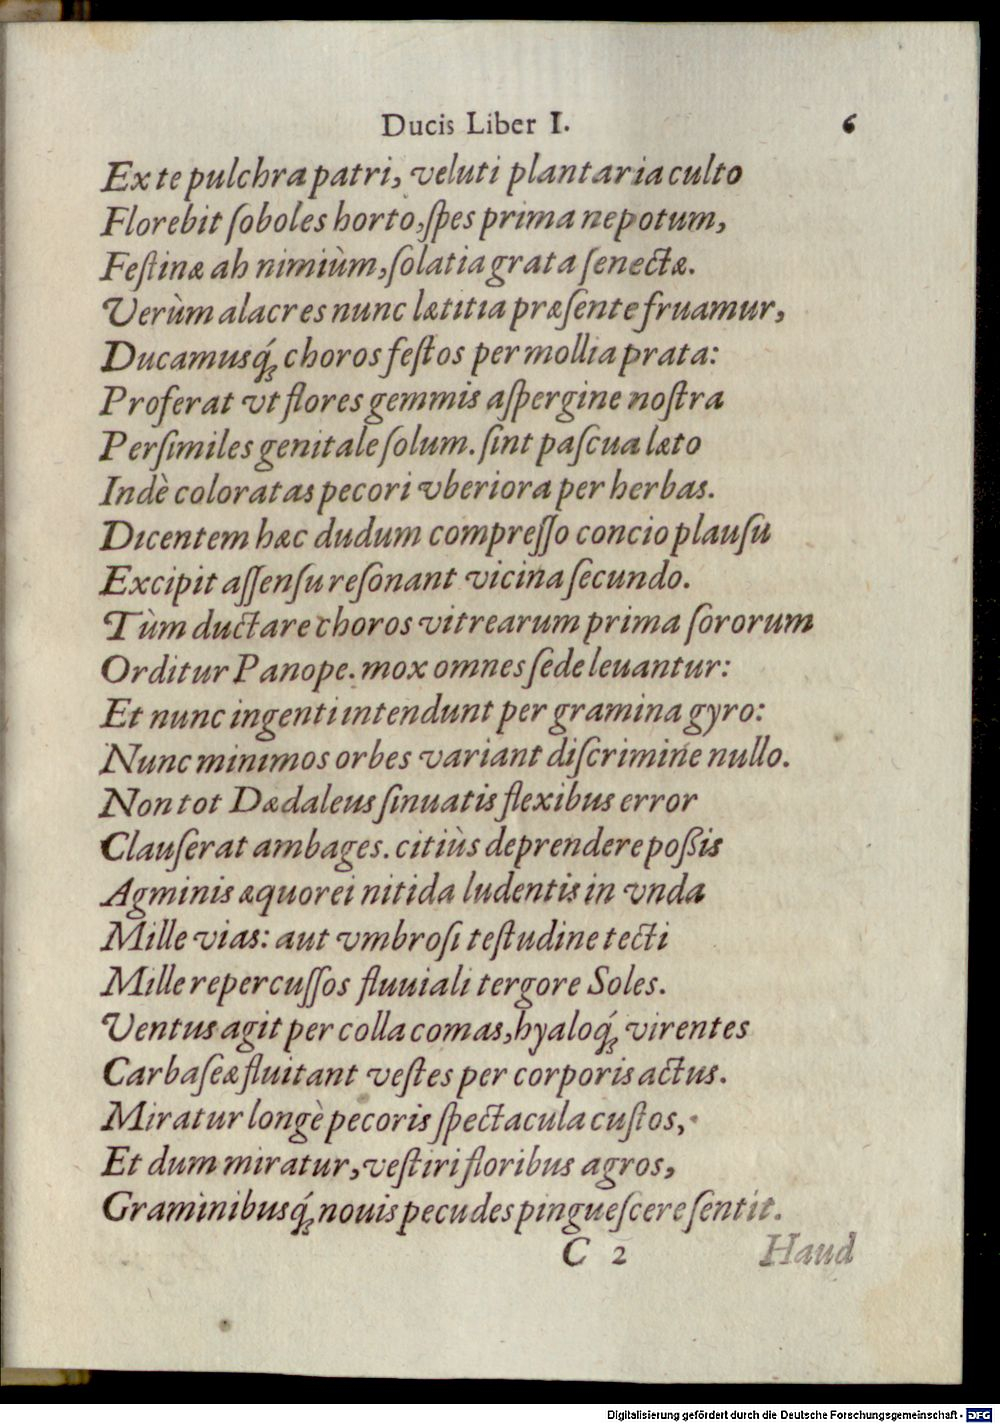 Ducis Liber I. 6
Ex te pulchra patri, veluti plantaria culto
Florebit ſoboles horto, ſpes prima nepotum,
Feſtinæ ah nimiùm, ſolatia grata ſenectæ.
Verùm alacres nunc lætitia præſente fruamur,
Ducamusq́; choros feſtos per mollia prata:
Proferat vt flores gemmis aſpergine noſtra
Perſimiles genitale ſolum. ſint paſcua læto
Indè coloratas pecori vberiora per herbas.
Dicentem hæc dudum compreſſo concio plauſu
Excipit aſſenſu reſonant vicina ſecundo.
Tùm ductare choros vitrearum prima ſororum
Orditur Panope. mox omnes ſede leuantur:
Et nunc ingenti intendunt per gramina gyro:
Nunc minimos orbes variant diſcrimine nullo.
Non tot Dædaleus ſinuatis flexibus error
Clauſerat ambages. citiùs deprendere poßis
Agminis æquorei nitida ludentis in vnda
Mille vias: aut vmbroſi teſtudine tecti
Mille repercuſſos fluuiali tergore Soles.
Ventus agit per colla comas, hyaloq́; virentes
Carbaſeæ fluitant veſtes per corporis actus.
Miratur longè pecoris ſpectacula cuſtos,
Et dum miratur, veſtiri floribus agros,
Graminibusq́; nouis pecudes pingueſcere ſentit.
C 2 Haud
Digitalisierung gefördert durch die Deutsche Forschungsgemeinschaft - DFG